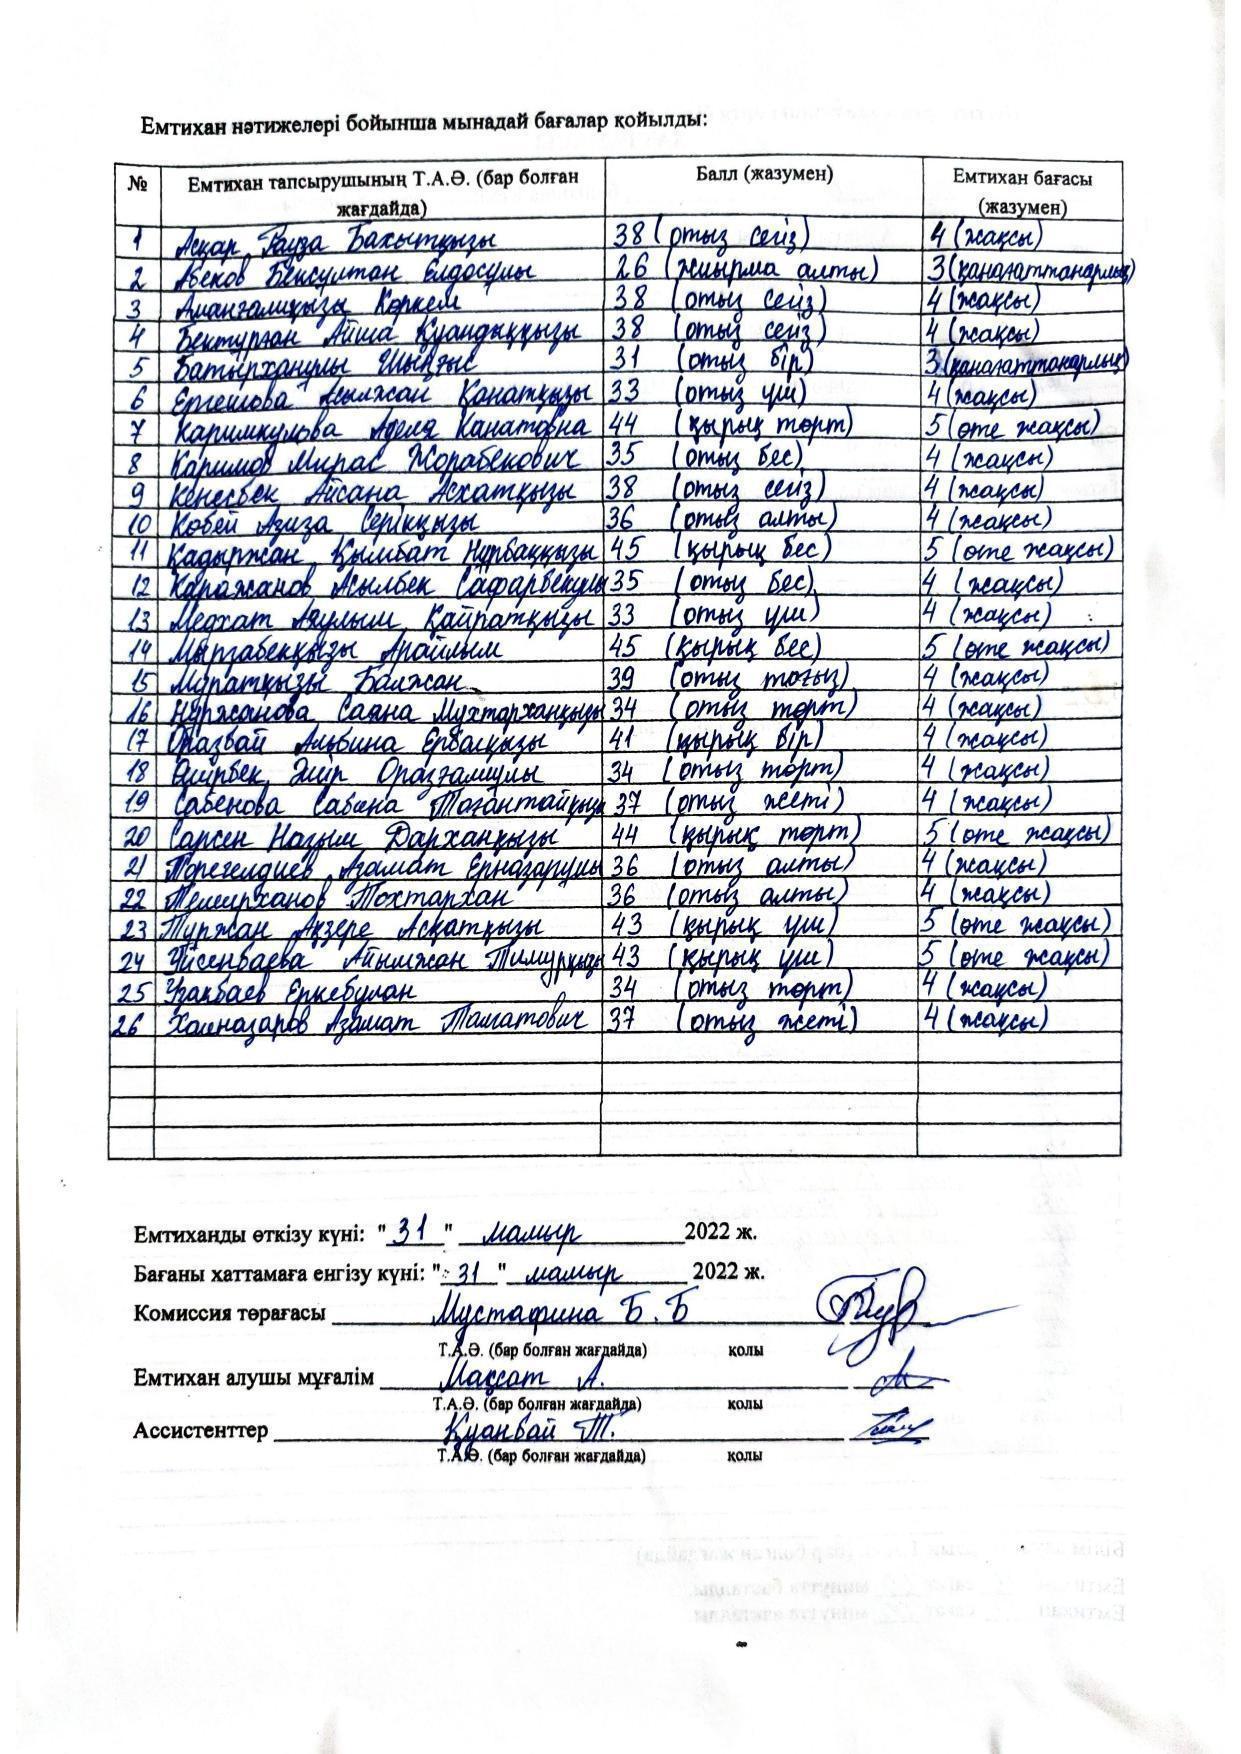 Емтихан нәтижелері бойынша мынадай бағалар қойылды:
№ Емтихан тапсырушының Т.А.Ә. (бар болған жағдайда) Балл (жазумен) Емтихан бағасы (жазумен)
1 Асқар Рауза Бахытқызы 38 (отыз сегіз) 4 (жақсы)
2 Абеков Бексултан Елдосұлы 26 (жиырма алты) 3 (қанағаттанарлық)
3 Аманғалиқызы Көркем 38 (отыз сегіз) 4 (жақсы)
4 Бектурған Айша Қуандыққызы 38 (отыз сегіз) 4 (жақсы)
5 Батырханұлы Шыңғыс 31 (отыз бір) 3 (қанағаттанарлық)
6 Ергешова Асылжан Қанатқызы 33 (отыз үш) 4 (жақсы)
7 Каримкулова Аделя Канатовна 44 (қырық төрт) 5 (өте жақсы)
8 Каримов Мирас Жорабекович 35 (отыз бес) 4 (жақсы)
9 Кеңесбек Айсана Асхатқызы 38 (отыз сегіз) 4 (жақсы)
10 Кобей Азиза Серікқызы 36 (отыз алты) 4 (жақсы)
11 Қадыржан Қымбат Нұрбаққызы 45 (қырық бес) 5 (өте жақсы)
12 Каражанов Асылбек Сафарбекұлы 35 (отыз бес) 4 (жақсы)
13 Медхат Аяулым Қайратқызы 33 (отыз үш) 4 (жақсы)
14 Мырзабекқызы Арайлым 45 (қырық бес) 5 (өте жақсы)
15 Мұратқызы Балжан 39 (отыз тоғыз) 4 (жақсы)
16 Нуржанова Саяна Мухтарханқызы 34 (отыз төрт) 4 (жақсы)
17 Оразбай Альбина Ерболқызы 41 (қырық бір) 4 (жақсы)
18 Өмірбек Әмір Оразғалиұлы 34 (отыз төрт) 4 (жақсы)
19 Сабенова Сабина Тоғантайқызы 37 (отыз жеті) 4 (жақсы)
20 Сарсен Назым Дарханқызы 44 (қырық төрт) 5 (өте жақсы)
21 Төрегелдиев Азамат Ерназарұлы 36 (отыз алты) 4 (жақсы)
22 Темирханов Тохтархан 36 (отыз алты) 4 (жақсы)
23 Тұржан Ақзере Асқатқызы 43 (қырық үш) 5 (өте жақсы)
24 Үйсенбаева Айымжан Тимурқызы 43 (қырық үш) 5 (өте жақсы)
25 Узакбаев Еркебулан 34 (отыз төрт) 4 (жақсы)
26 Халназаров Азамат Талгатович 37 (отыз жеті) 4 (жақсы)
Емтиханды өткізу күні: "31" мамыр 2022 ж.
Бағаны хаттамаға енгізу күні: "31" мамыр 2022 ж.
Комиссия төрағасы Мустафина Б.Б
Т.А.Ә. (бар болған жағдайда) қолы
Емтихан алушы мұғалім Мақсат А.
Т.А.Ә. (бар болған жағдайда) қолы
Ассистенттер Қуанбай Т.
Т.А.Ә. (бар болған жағдайда) қолы